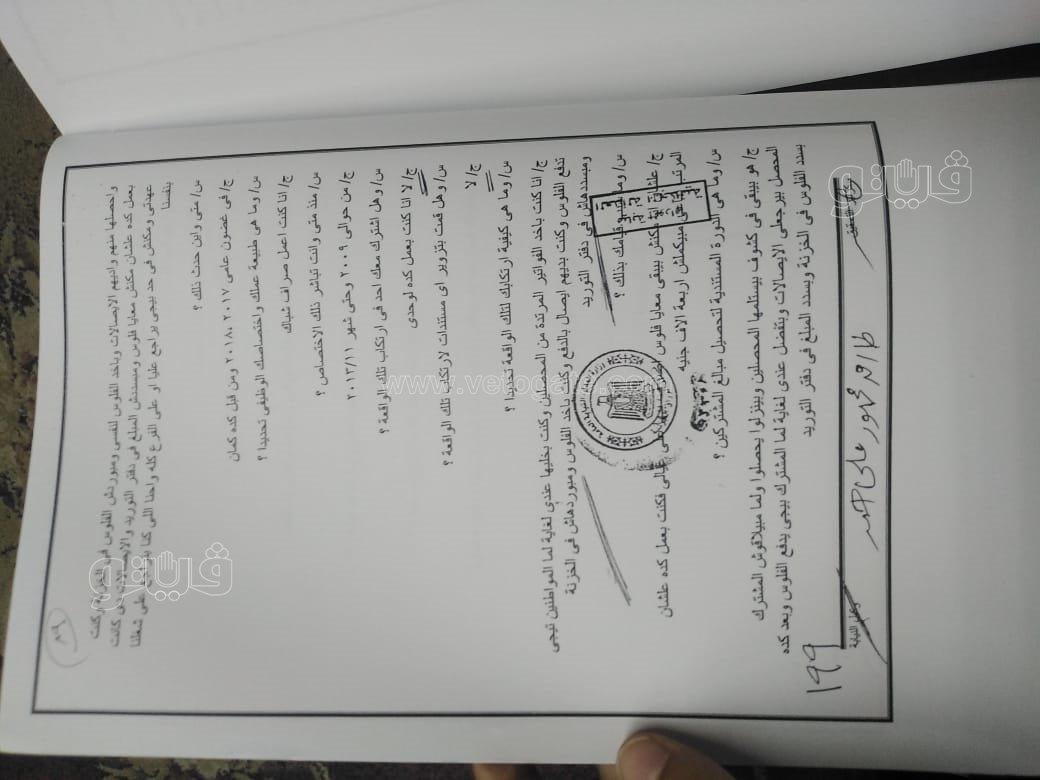 ٨٩
واحصلها منهم واديهم الايصالات وباخد الفلوس لنفسى ومبوردش الفلوس فى الخزنة وكنت
بعمل كده علشان مكنش معايا فلوس ومبسددش المبلغ فى دفتر التوريد والايصالات دى كانت
عهدتى ومكنش فى حد بيجى يراجع عليا او على الفرع كله واحنا اللى كنا على شغلنا
بنفسنا
س/ متى واين حدث ذلك ؟
ج/ فى غضون عامى ٢٠١٧، ٢٠١٨ ومن قبل كده كمان
س/ وما هى طبيعة عملك واختصاصك الوظيفى تحديدا ؟
ج/ انا كنت اعمل صراف شباك
س/ منذ متى وانت تباشر ذلك الاختصاص ؟
ج/ من حوالى ٢٠٠٩ وحتى شهر ٢٠١٣/١١
س/ وهل اشترك معك احد فى ارتكاب تلك الواقعة ؟
ج/ لا انا كنت بعمل كده لوحدى
س/ وهل قمت بتزوير اى مستندات لارتكاب تلك الواقعة ؟
ج/ لا
س/ وما هى كيفية ارتكابك لتلك الواقعة تحديدا ؟
ج/ انا كنت باخد الفواتير المرتدة من المحصلين وكنت بخليها عندى لغاية لما المواطنين تيجى
تدفع الفلوس وكنت بديهم ايصال بالدفع وكنت باخد الفلوس ومبوردهاش فى الخزنة
ومبسددهاش فى دفتر التوريد
س/ وما قيامك بذلك ؟
ج/ علشان مكنش بيبقى معايا فلوس على عيالى فكنت بعمل كده علشان
المرتب مبيكملش اربعة الاف جنيه
س/ وما هى الدورة المستندية لتحصيل مبالغ المشتركين ؟
ج/ هو بيبقى فى كشوف بيستلمها المحصلين وبينزلوا يحصلوا ولما مبيلاقوش المشترك
المحصل بيرجعلى الايصالات وبتفضل عندى لغاية لما المشترك بيجى يدفع الفلوس وبعد كده
بسدد الفلوس فى الخزنة وبسدد المبلغ فى دفتر التوريد
وكيل النيابة
طارق محمود على احمد
١٩٩
فيتو
www.vetogate.com